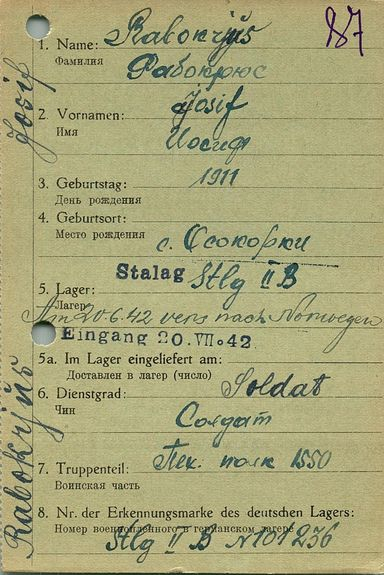 87
1. Name: Rabokrÿs
Фамилия Рабокрюс
2. Vornamen: Josif
Имя Иосиф
3. Geburtstag: 1911
День рождения
4. Geburtsort:
Место рождения с. Осокорки
Stalag Stlg II B
5. Lager:
Лагерь
Am 20.6.42 vers nach Norwegen
Eingang 20. VII. 42
5a. Im Lager eingeliefert am:
Доставлен в лагерь (число)
6. Dienstgrad: Soldat
Чин Солдат
7. Truppenteil: Пех. полк 1550
Воинская часть
8. Nr. der Erkennungsmarke des deutschen Lagers:
Номер военнопленного в германском лагере
Stlg II B N 101236
Rabokrÿs Josif